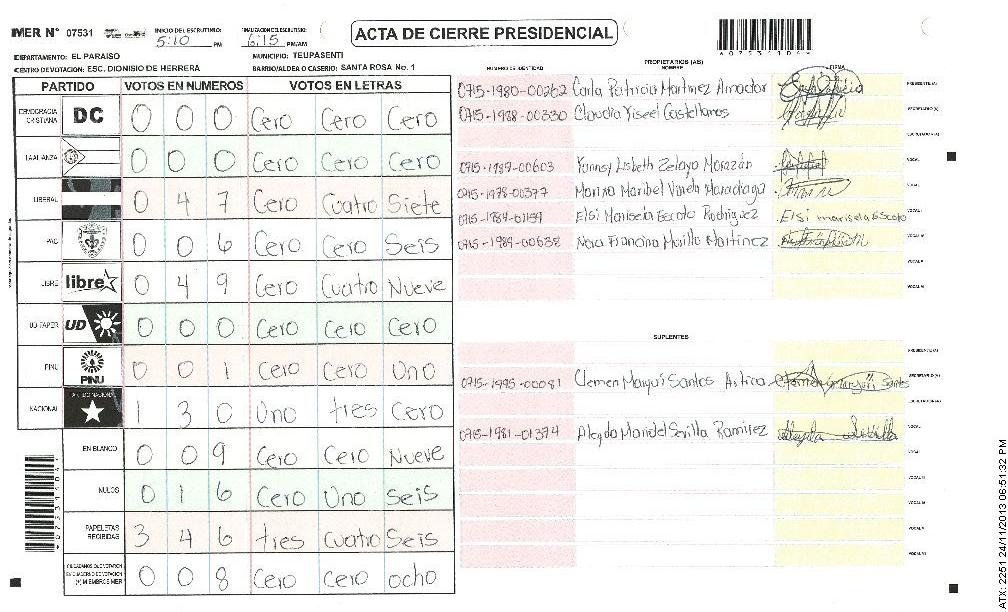 MER N° 07531 INICIO DEL ESCRUTINIO: 5:10 PM FINALIZACION DEL ESCRUTINIO: 6:15 PM/AM
ACTA DE CIERRE PRESIDENCIAL
DEPARTAMENTO: EL PARAISO MUNICIPIO: TEUPASENTI
CENTRO DE VOTACION: ESC. DIONISIO DE HERRERA BARRIO/ALDEA O CASERIO: SANTA ROSA No. 1
PARTIDO VOTOS EN NUMEROS VOTOS EN LETRAS
DEMOCRACIA CRISTIANA DC 0 0 0 Cero Cero Cero
LA ALIANZA 0 0 0 Cero Cero Cero
LIBERAL 0 4 7 Cero Cuatro Siete
PAC 0 0 6 Cero Cero Seis
LIBRE libre 0 4 9 Cero Cuatro Nueve
UD FAPER UD 0 0 0 Cero Cero Cero
PINU PINU 0 0 1 Cero Cero Uno
NACIONAL 1 3 0 Uno tres Cero
EN BLANCO 0 0 9 Cero Cero Nueve
NULOS 0 1 6 Cero Uno Seis
PAPELETAS RECIBIDAS 3 4 6 tres Cuatro Seis
CIUDADANOS DE VOTACION EN CUADERNO DE VOTACION (+) MIEMBROS MER 0 0 8 Cero cero ocho
PROPIETARIOS (AS)
NUMERO DE IDENTIDAD NOMBRE FIRMA
0715-1980-00262 Carla Patricia Martinez Amador PRESIDENTE(A)
0715-1988-00330 Claudia Yiseel Castellanos SECRETARIO(A)
ESCRUTADOR(A)
0715-1989-00603 Yannsy Lisbeth Zelaya Morazán VOCAL
0715-1978-00377 Marina Maribel Varela Maradiaga VOCAL
0715-1984-01159 Elsi Marisela Escoto Rodriguez Elsi marisela Escoto VOCAL
0715-1989-00638 Nora Francina Morillo Martinez VOCAL
VOCAL
VOCAL
SUPLENTES
PRESIDENTE(A)
0715-1995-00081 Clemen Maryuri Santos SECRETARIO(A)
ESCRUTADOR(A)
0715-1981-01374 Aleyda Maridel Sevilla Ramirez VOCAL
VOCAL
VOCAL
VOCAL
VOCAL
VOCAL
ATX: 2251 24/11/2013 06:51:32 PM